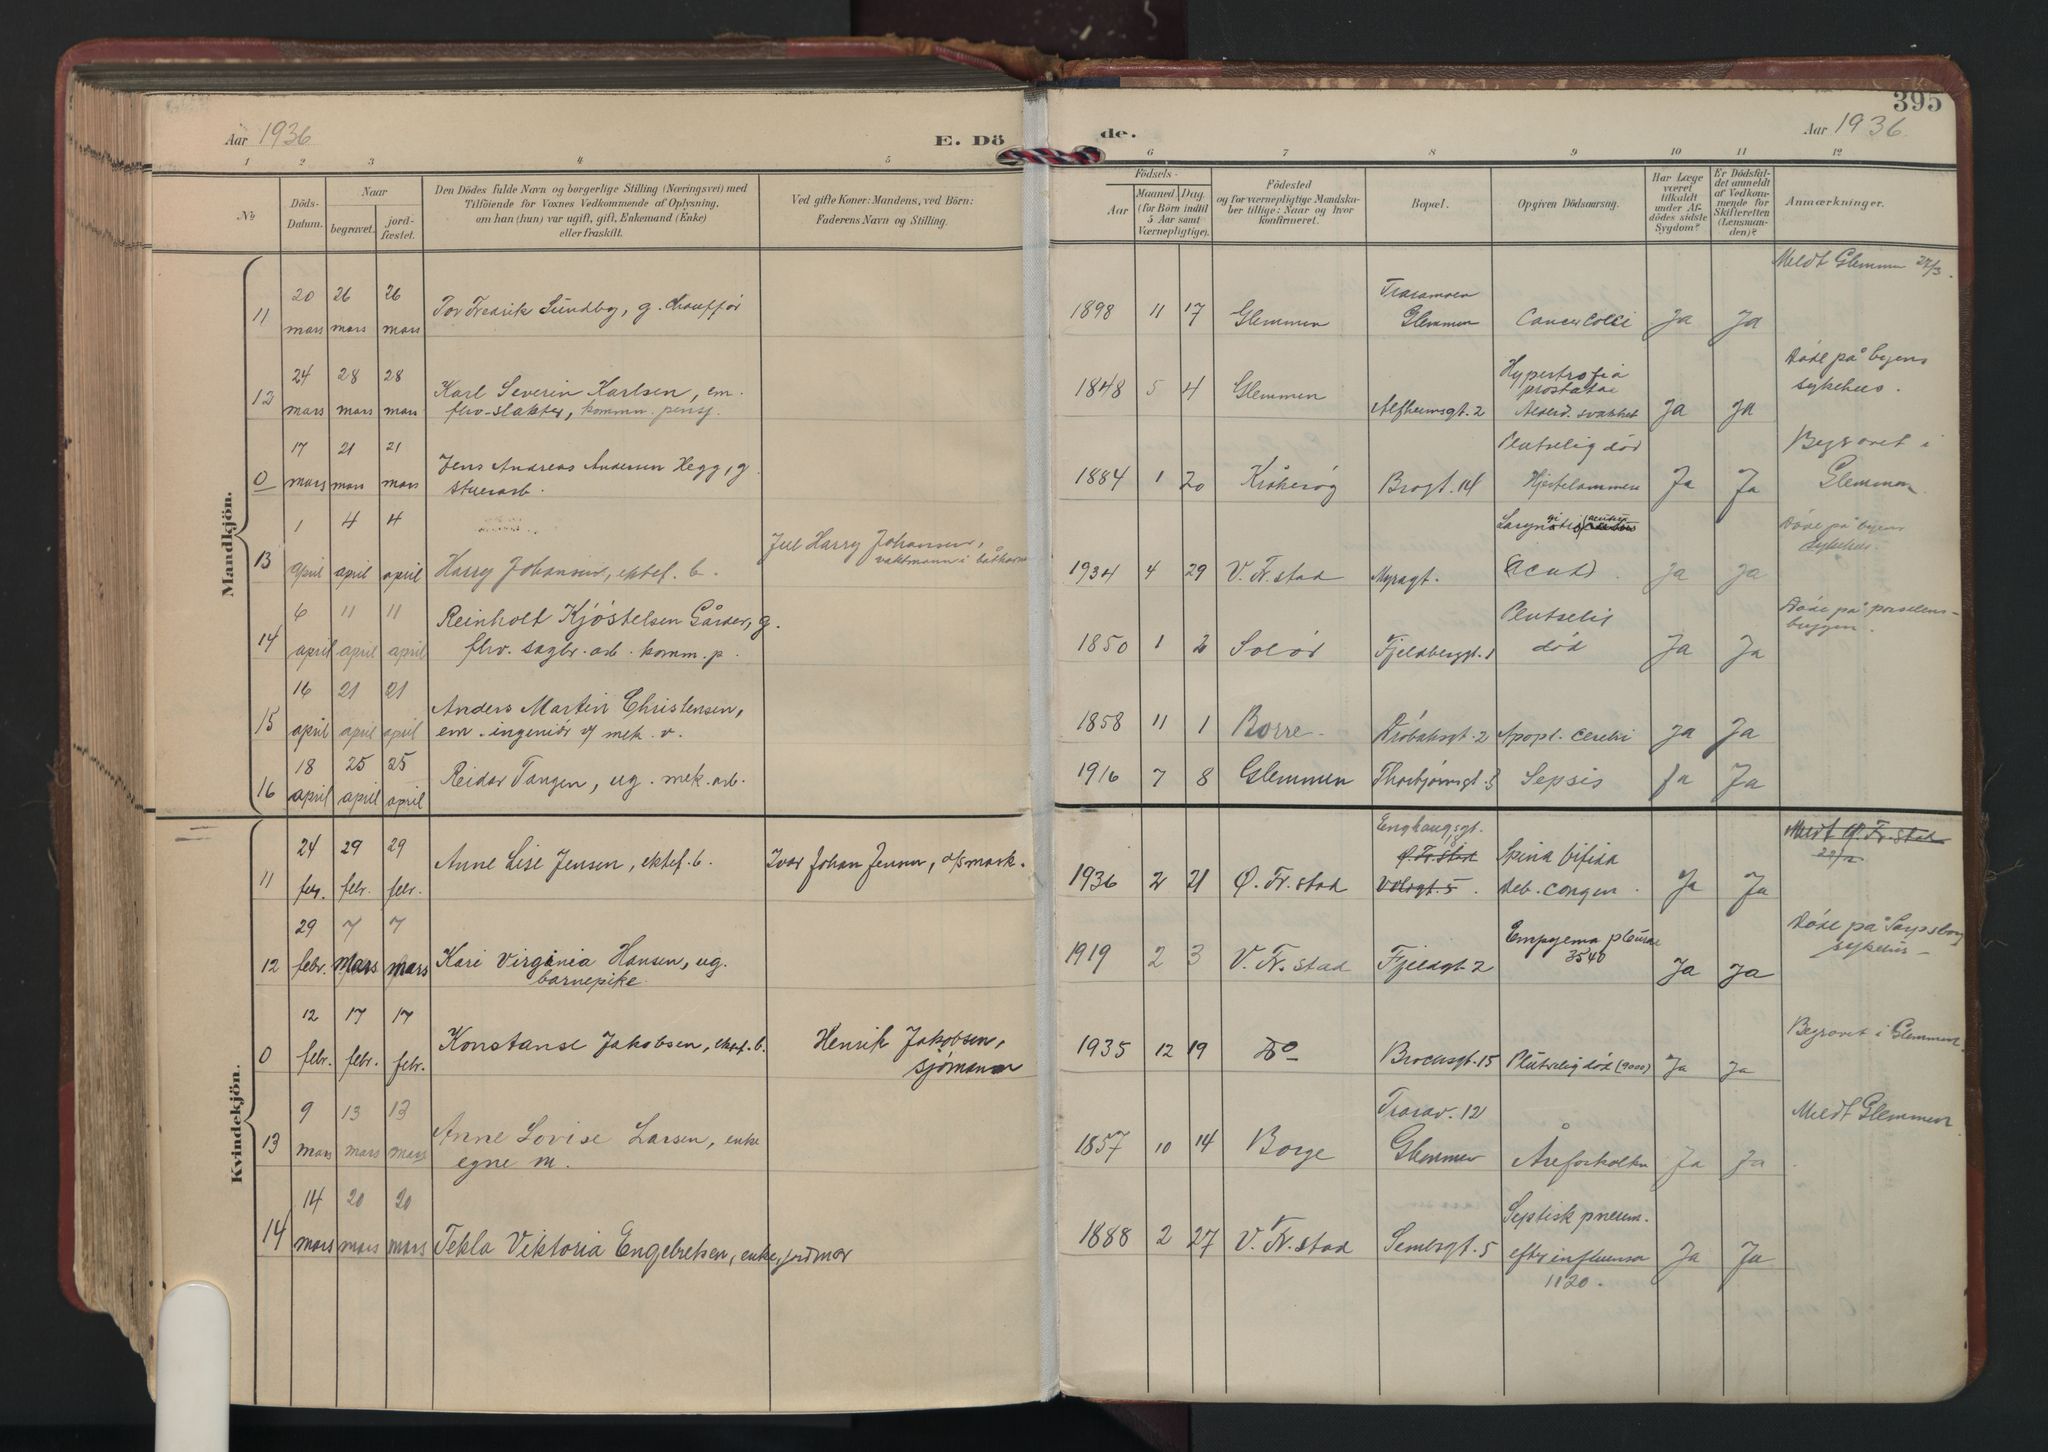 395
Aar 1936
E. Dö
de.
Aar 1936.
1 2 3 4 5
6 7 8 9 10 11 12
No
Döds-
Datum.
Naar
begravet.
jord-
fæstet.
Den Dödes fulde Navn og borgerlige Stilling (Næringsvei) med
Tilföiende for Voxnes Vedkommende af Oplysning,
om han (hun) var ugift, gift, Enkemand (Enke)
eller fraskilt.
Ved gifte Koner: Mandens, ved Börn:
Faderens Navn og Stilling.
Födsels-
Aar
Maaned Dag
(for Börn indtil
5 Aar samt
Værnepligtige).
Födested
og for værnepligtige Mandska-
ber tillige: Naar og hvor
konfirmeret.
Bopæl.
Opgiven Dödsaarsag.
Har Læge
været
tilkaldt
under Af-
dödes sidste
Sygdom?
Er Dödsfal-
det anmeldt
af Vedkom-
mende for
Skifteretten
(Lensman-
den)?
Anmærkninger.
Mandkjön.
11 20 mars 26 mars 26 mars Tor Fredrik Sundby, g. chauffør
1898 11 17 Glemmen Traramoen Glemmen Cancer Colli Ja Ja Meldt Glemmen 27/3.
12 24 mars 28 mars 28 mars Karl Severin Karlsen, em.
frv. slakter, kommn. pensj.
1848 5 4 Glemmen Alfheimsgt. 2 Hypertrofia prostatae
Alderd. svakhet Ja Ja Døde på byens
sykehus.
0 17 mars 21 mars 21 mars Jens Andreas Andersen Hegg, g.
stuerarb.
1884 1 20 Kråkerøy Brogt. 14 Plutselig død
Hjertelammen Ja Ja Begravet i
Glemmen
13 1 april 4 april 4 april Harry Johansen, ektef. b. Jul Harry Johansen,
vaktmann i båthavne
1934 4 29 V. Fr.stad Myragt. (acut) Ja Ja Døde på byens
sykehus.
14 6 april 11 april 11 april Reinholt Kjøstelsen Gårder, g.
frv. sagbr. arb. komm. p.
1850 1 2 Solør Fjeldberggt. 1 Plutselig
død Ja Ja Døde på porselens-
byggen.
15 16 april 21 april 21 april Anders Martin Christensen,
em. ingeniør v/ mek. v.
1858 11 1 Borre Drøbaksgt. 2 Apopl. cerebri Ja Ja
16 18 april 25 april 25 april Reidar Tangen, ug. mek. arb.
1916 7 8 Glemmen Thorbjørnsgt. 3 Sepsis Ja Ja
Kvindekjön.
11 24 febr. 29 febr. 29 febr. Anne Lise Jensen, ektef. b. Ivar Johan Jensen, d/s mask.
1936 2 21 Ø. Fr.stad Enghaugsgt. 18
Ø. Fr.stad
Volgt. 5. Spina bifida
deb. congen. Ja Ja Meldt Ø. Fr.stad
29/2
12 29 febr. 7 mars 7 mars Kari Virginia Hansen, ug.
barnepike.
1919 2 3 V. Fr. stad Fjeldgt. 2 Empyema pleurae
3540 Ja Ja Døde på Sarpsborg
sykehus
0 12 febr. 17 febr. 17 febr. Konstanse Jakobsen, ektef. b. Henrik Jakobsen,
sjømann
1935 12 19 Do Brochsgt. 15 Plutselig død (9000) Ja Ja Begravet i Glemmen.
13 9 mars 13 mars 13 mars Anne Lovise Larsen, enke
egne m.
1857 10 14 Borge Trarav. 12
Glemmen Åreforkalkn Ja Ja Meldt Glemmen.
14 14 mars 20 mars 20 mars Tekla Viktoria Engebretsen, enke, jordmor
1888 2 27 V. Fr. stad Sembsgt. 5 Septisk pneum.
efter influensa
1120. Ja Ja